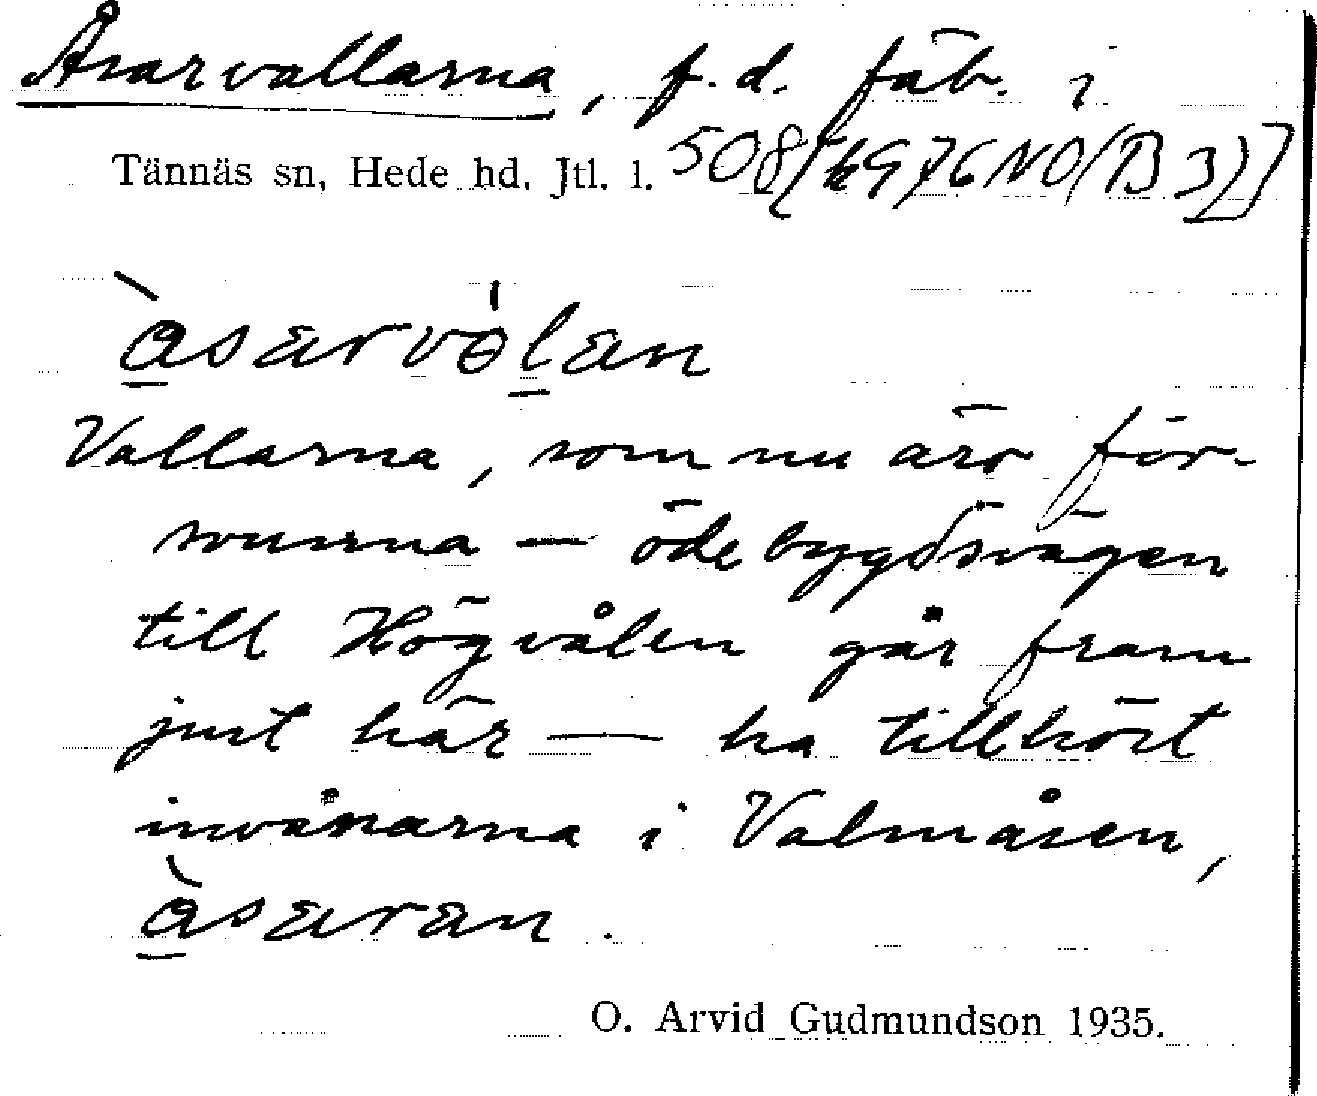 Åsarvallarna, f.d. fäb. i
Tännäs sn, Hede hd, Jtl. l. 508[6976NO(B3)]
àsarvölan
Vallarna, som nu äro för-
svunna — ödebygdsvägen
till Högvålen går fram
just här — ha tillhört
invånarna i Valmåsen,
àsaran.
O. Arvid Gudmundson 1935.